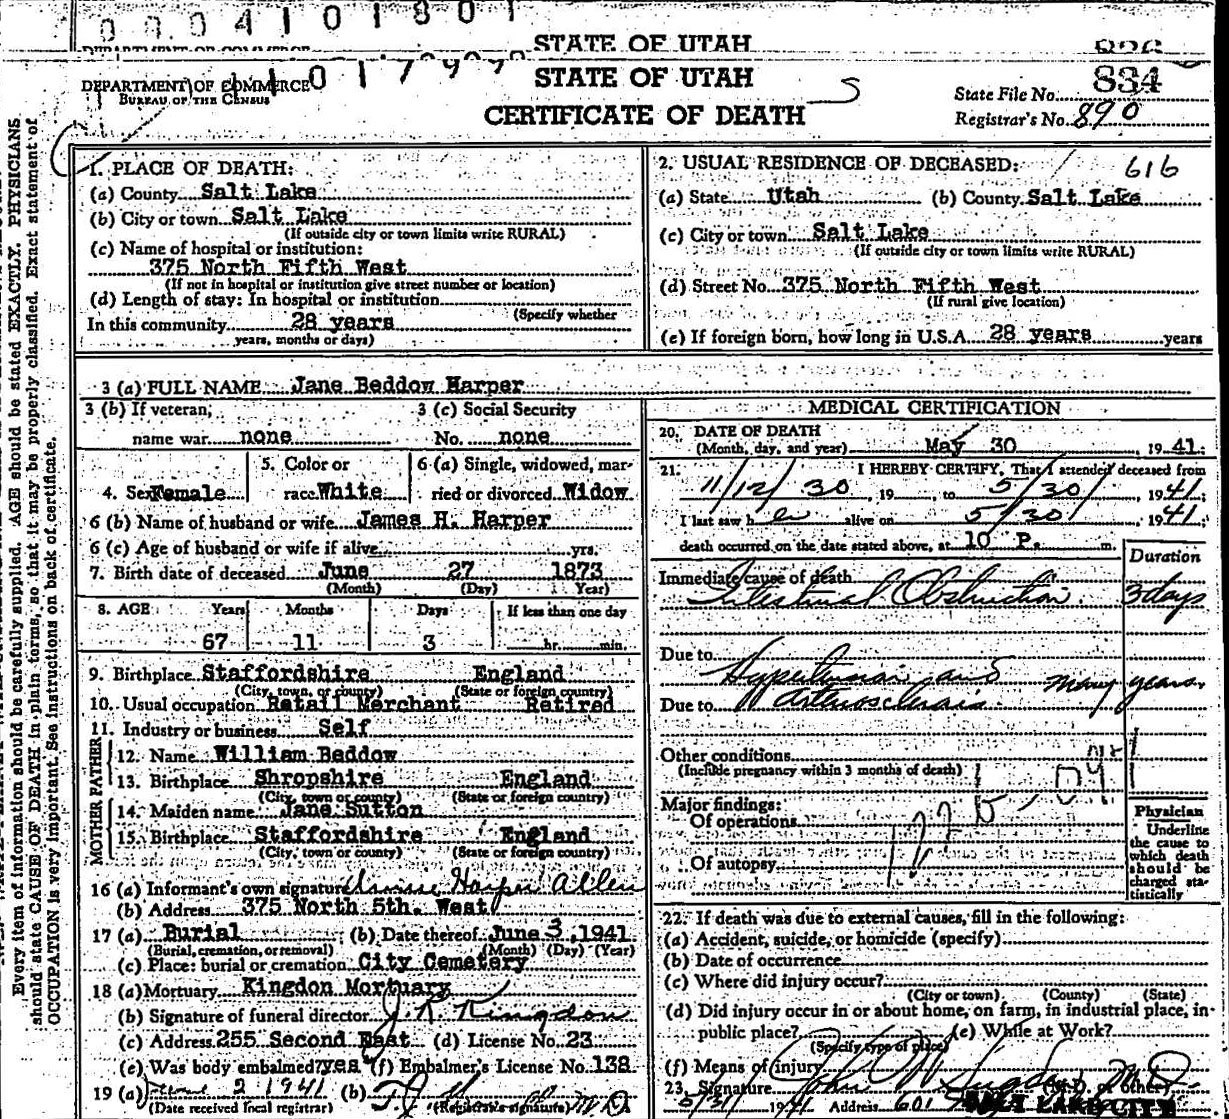 0004101801
DEPARTMENT OF COMMERCE
STATE OF UTAH
DEPARTMENT OF COMMERCE
BUREAU OF THE CENSUS
STATE OF UTAH
CERTIFICATE OF DEATH
State File No. 834
Registrar's No. 890
Every item of information should be carefully supplied. AGE should be stated EXACTLY. PHYSICIANS
should state CAUSE OF DEATH in plain terms, so that it may be properly classified. Exact statement of
OCCUPATION is very important. See instructions on back of certificate.
1. PLACE OF DEATH:
(a) County Salt Lake
(b) City or town Salt Lake
(If outside city or town limits write RURAL)
(c) Name of hospital or institution:
375 North Fifth West
(If not in hospital or institution give street number or location)
(d) Length of stay: In hospital or institution
(Specify whether
In this community 28 years
years, months or days)
2. USUAL RESIDENCE OF DECEASED: 616
(a) State Utah (b) County Salt Lake
(c) City or town Salt Lake
(If outside city or town limits write RURAL)
(d) Street No. 375 North Fifth West
(If rural give location)
(e) If foreign born, how long in U.S.A. 28 years years
3 (a) FULL NAME Jane Beddow Harper
3 (b) If veteran, 3 (c) Social Security
name war none No. none
4. Sex Female
5. Color or
race White
6 (a) Single, widowed, mar-
ried or divorced Widow
6 (b) Name of husband or wife James H. Harper
6 (c) Age of husband or wife if alive yrs.
7. Birth date of deceased June 27 1873
(Month) (Day) Year)
8. AGE Years Months Days If less than one day
67 11 3 hr. min.
9. Birthplace Staffordshire England
(City, town, or county) (State or foreign country)
10. Usual occupation Retail Merchant Retired
11. Industry or business Self
FATHER
12. Name William Beddow
13. Birthplace Shropshire England
(City, town or county) (State or foreign country)
MOTHER
14. Maiden name Jane Sutton
15. Birthplace Staffordshire England
(City, town or county) (State or foreign country)
16 (a) Informant's own signature Harper Allen
(b) Address 375 North 5th. West
17 (a) Burial (b) Date thereof June 3, 1941
(Burial, cremation, or removal) (Month) (Day) (Year)
(c) Place: burial or cremation City Cemetery
18 (a) Mortuary Kingdon Mortuary
(b) Signature of funeral director J. R. Kingdon
(c) Address 255 Second East (d) License No. 23
(e) Was body embalmed? yes (f) Embalmer's License No. 138
19 (a) June 2 1941 (b) M.D.
(Date received local registrar) (Registrar's signature)
MEDICAL CERTIFICATION
20. DATE OF DEATH
(Month, day, and year) May 30, 1941.
21. I HEREBY CERTIFY, That I attended deceased from
11/12/30, 19 , to 5/30/, 1941,
I last saw her alive on 5/30/, 1941;
death occurred on the date stated above, at 10 P. m.
Duration
Immediate cause of death
Intestinal Obstruction 3 days
Due to
Hypertension and many years.
Due to Arteriosclerosis.
Other conditions
(Include pregnancy within 3 months of death)
Major findings:
Of operations
Of autopsy
Physician
Underline
the cause to
which death
should be
charged sta-
tistically
22. If death was due to external causes, fill in the following:
(a) Accident, suicide, or homicide (specify)
(b) Date of occurrence
(c) Where did injury occur?
(City or town) (County) (State)
(d) Did injury occur in or about home, on farm, in industrial place, in
public place? (e) While at Work?
(Specify type of place)
(f) Means of injury
23. Signature John M.D.
(M.D. or other)
5/31/1941 Address 601 SALT LAKE CITY